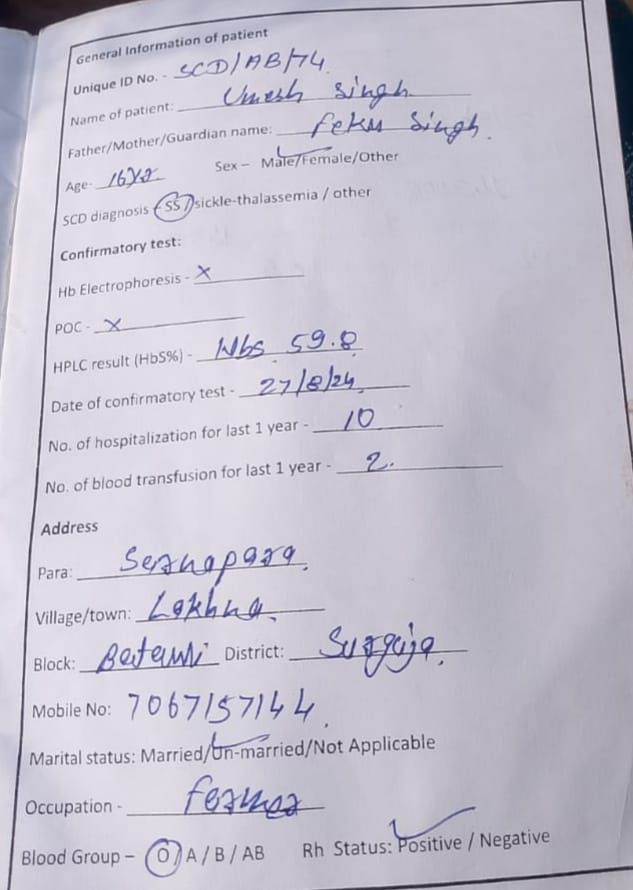 General Information of patient
Unique ID No. - SCD/AB/74
Name of patient: Umesh Singh
Father/Mother/Guardian name: Feku Singh
Age- 16 Yrs Sex – Male/Female/Other
SCD diagnosis - SS / sickle-thalassemia / other
Confirmatory test:
Hb Electrophoresis - x
POC - x
HPLC result (HbS%) - Hbs 59.8
Date of confirmatory test - 27/8/24
No. of hospitalization for last 1 year - 10
No. of blood transfusion for last 1 year - 2.
Address
Para:
Village/town: Lakhna
Block: District: Surguja
Mobile No: 7067157144
Marital status: Married/Un-married/Not Applicable
Occupation - Farmer
Blood Group – O / A / B / AB Rh Status: Positive / Negative